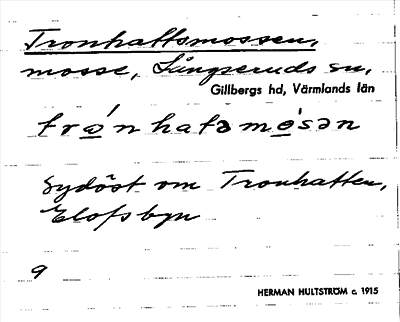 Tronhattsmossen,
mosse, Långseruds sn,
Gillbergs hd, Värmlands län
trånhatəmósən
Sydöst om Tronhatten,
Elofsbyn
9
HERMAN HULTSTRÖM c. 1915